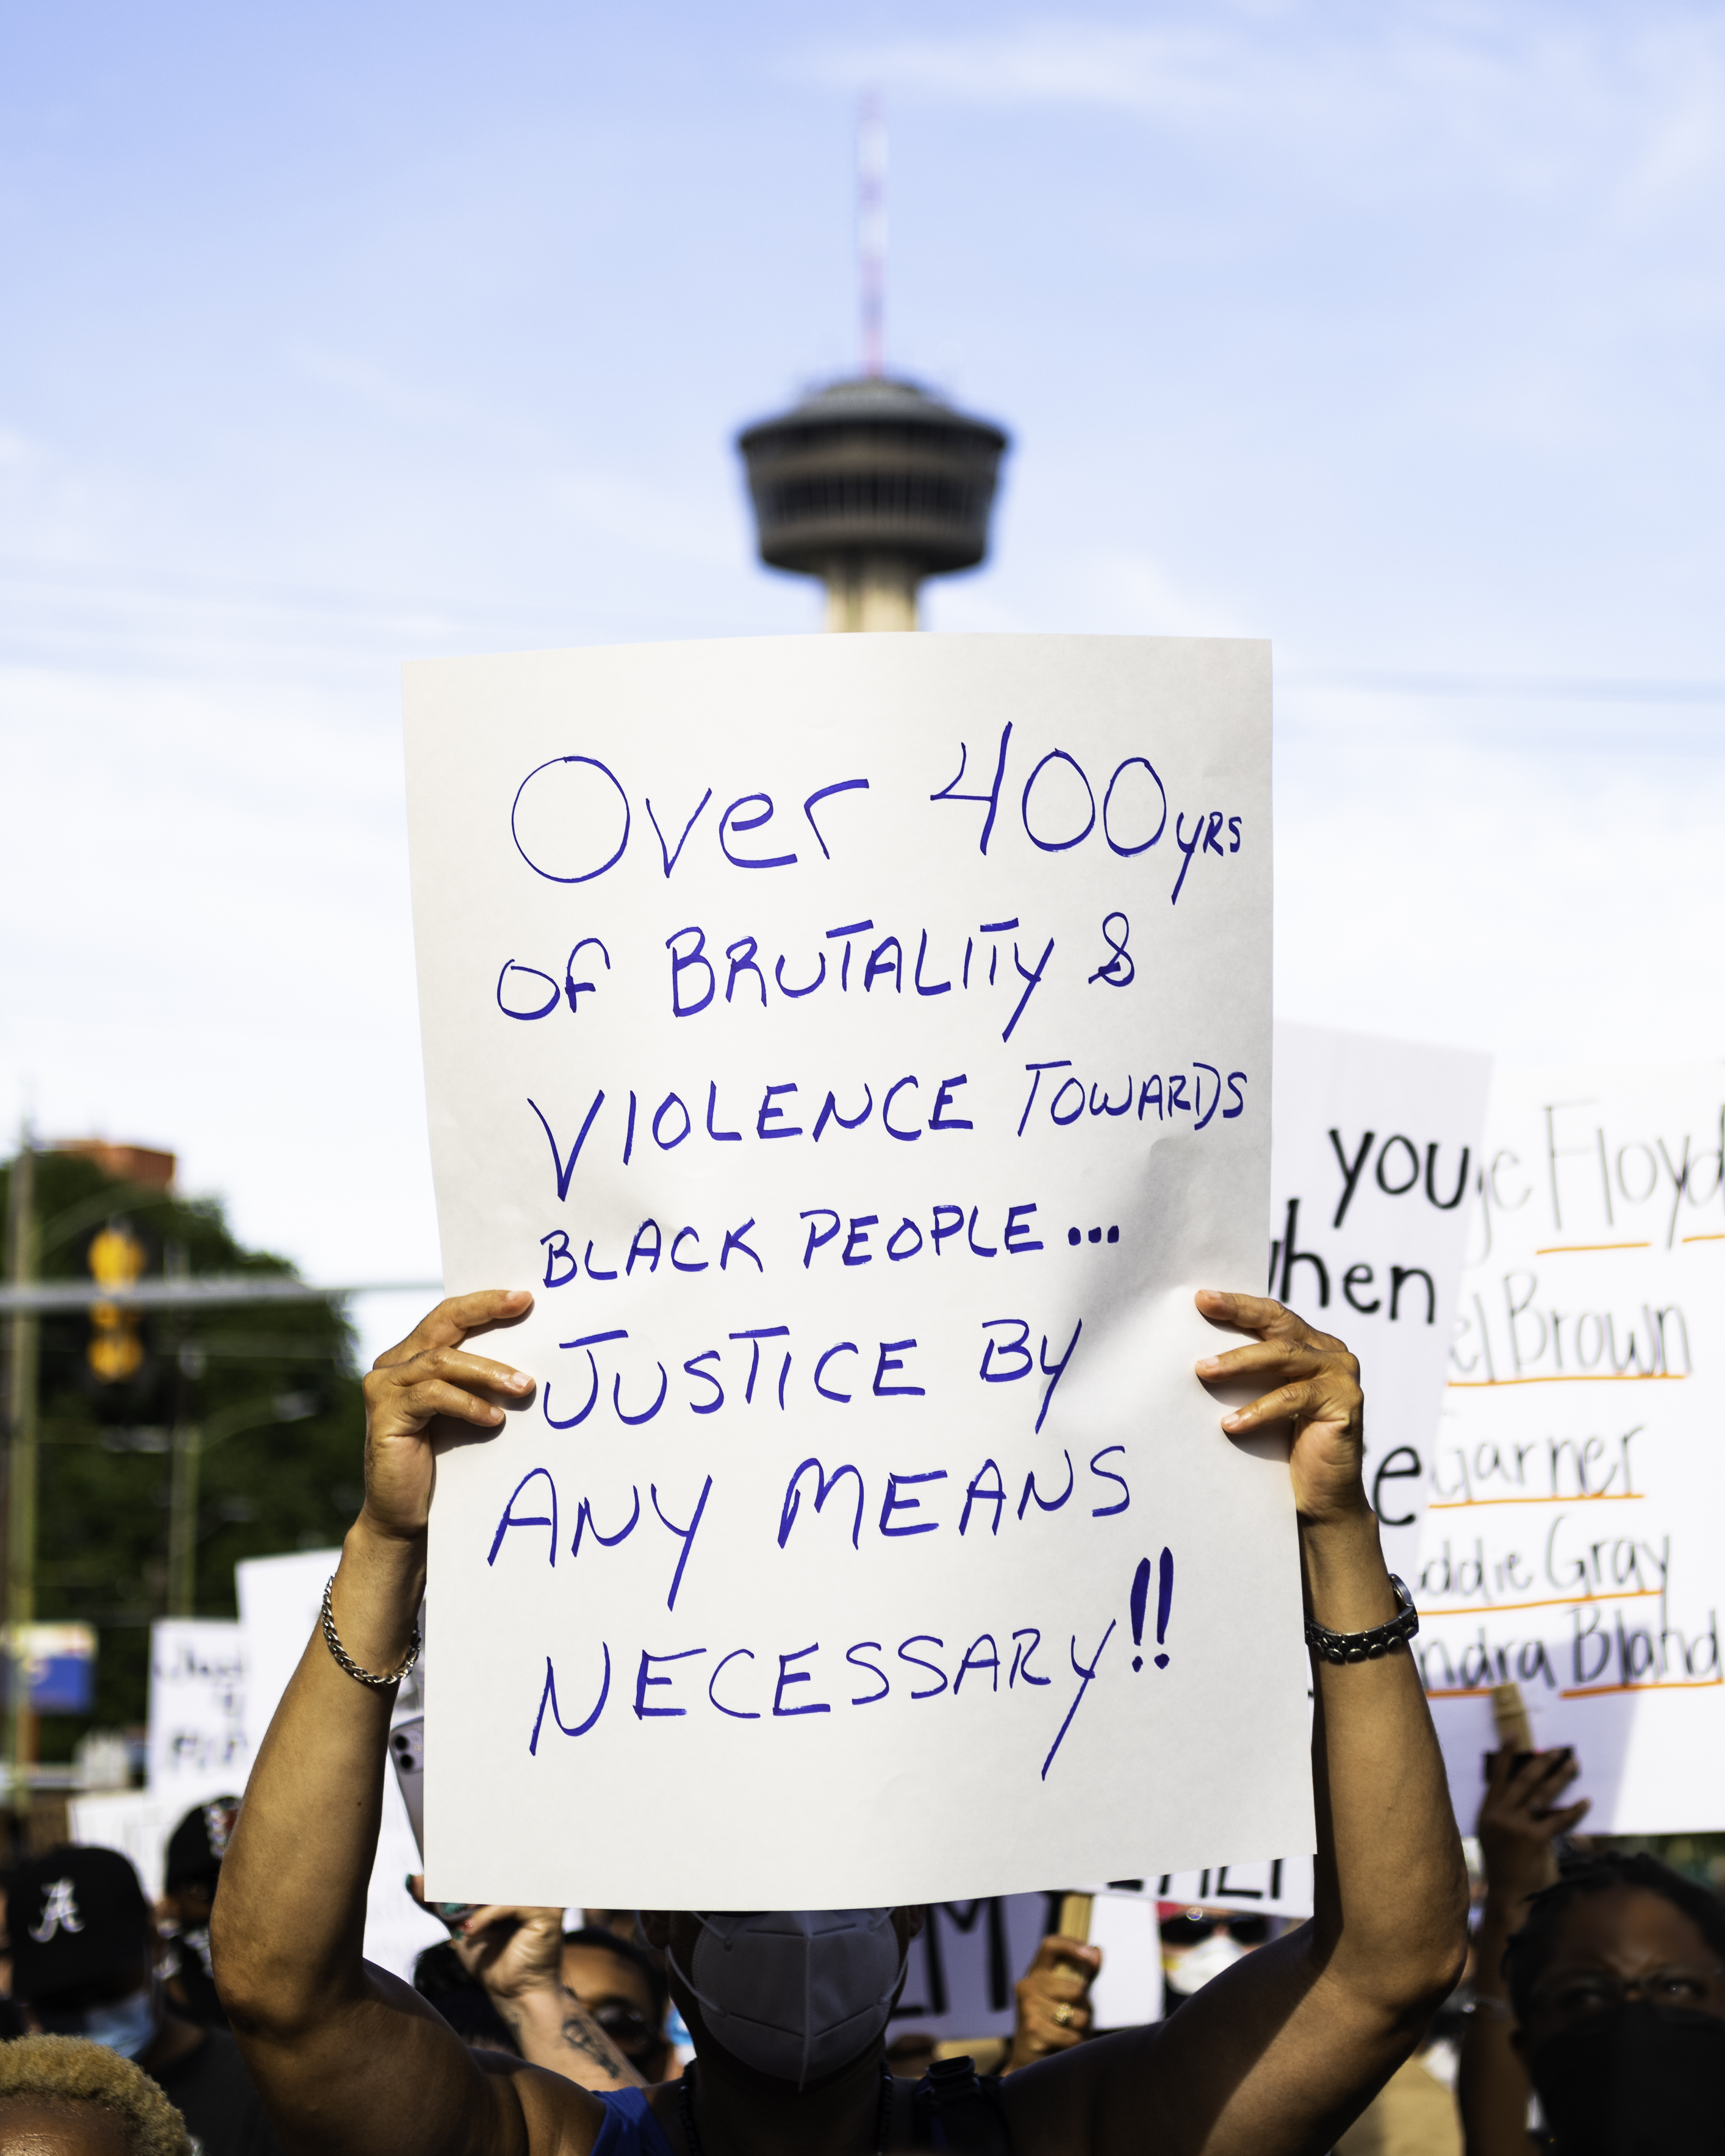 Over 400yrs
of BRUTALITY &
VIOLENCE TOWARDS
BLACK PEOPLE...
JUSTICE By
ANY MEANS
NECESSARY!!
you
hen
Floyd
Brown
Garner
Gray
Bland
A